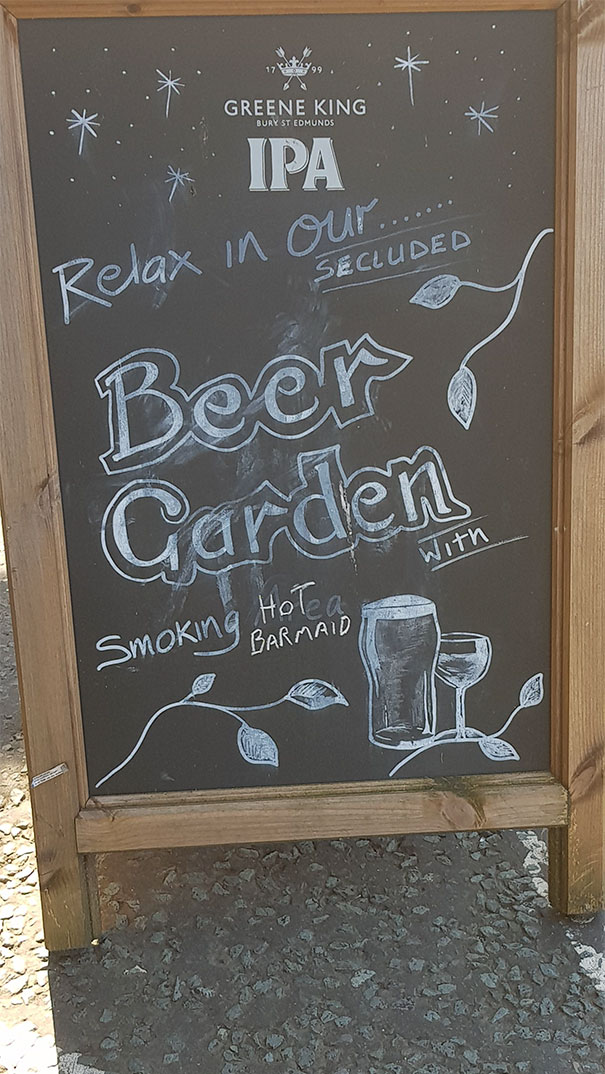 17 99
GREENE KING
BURY ST EDMUNDS
IPA
Relax in our.......
SECLUDED
Beer
Garden
With
Smoking Area
HOT
BARMAID